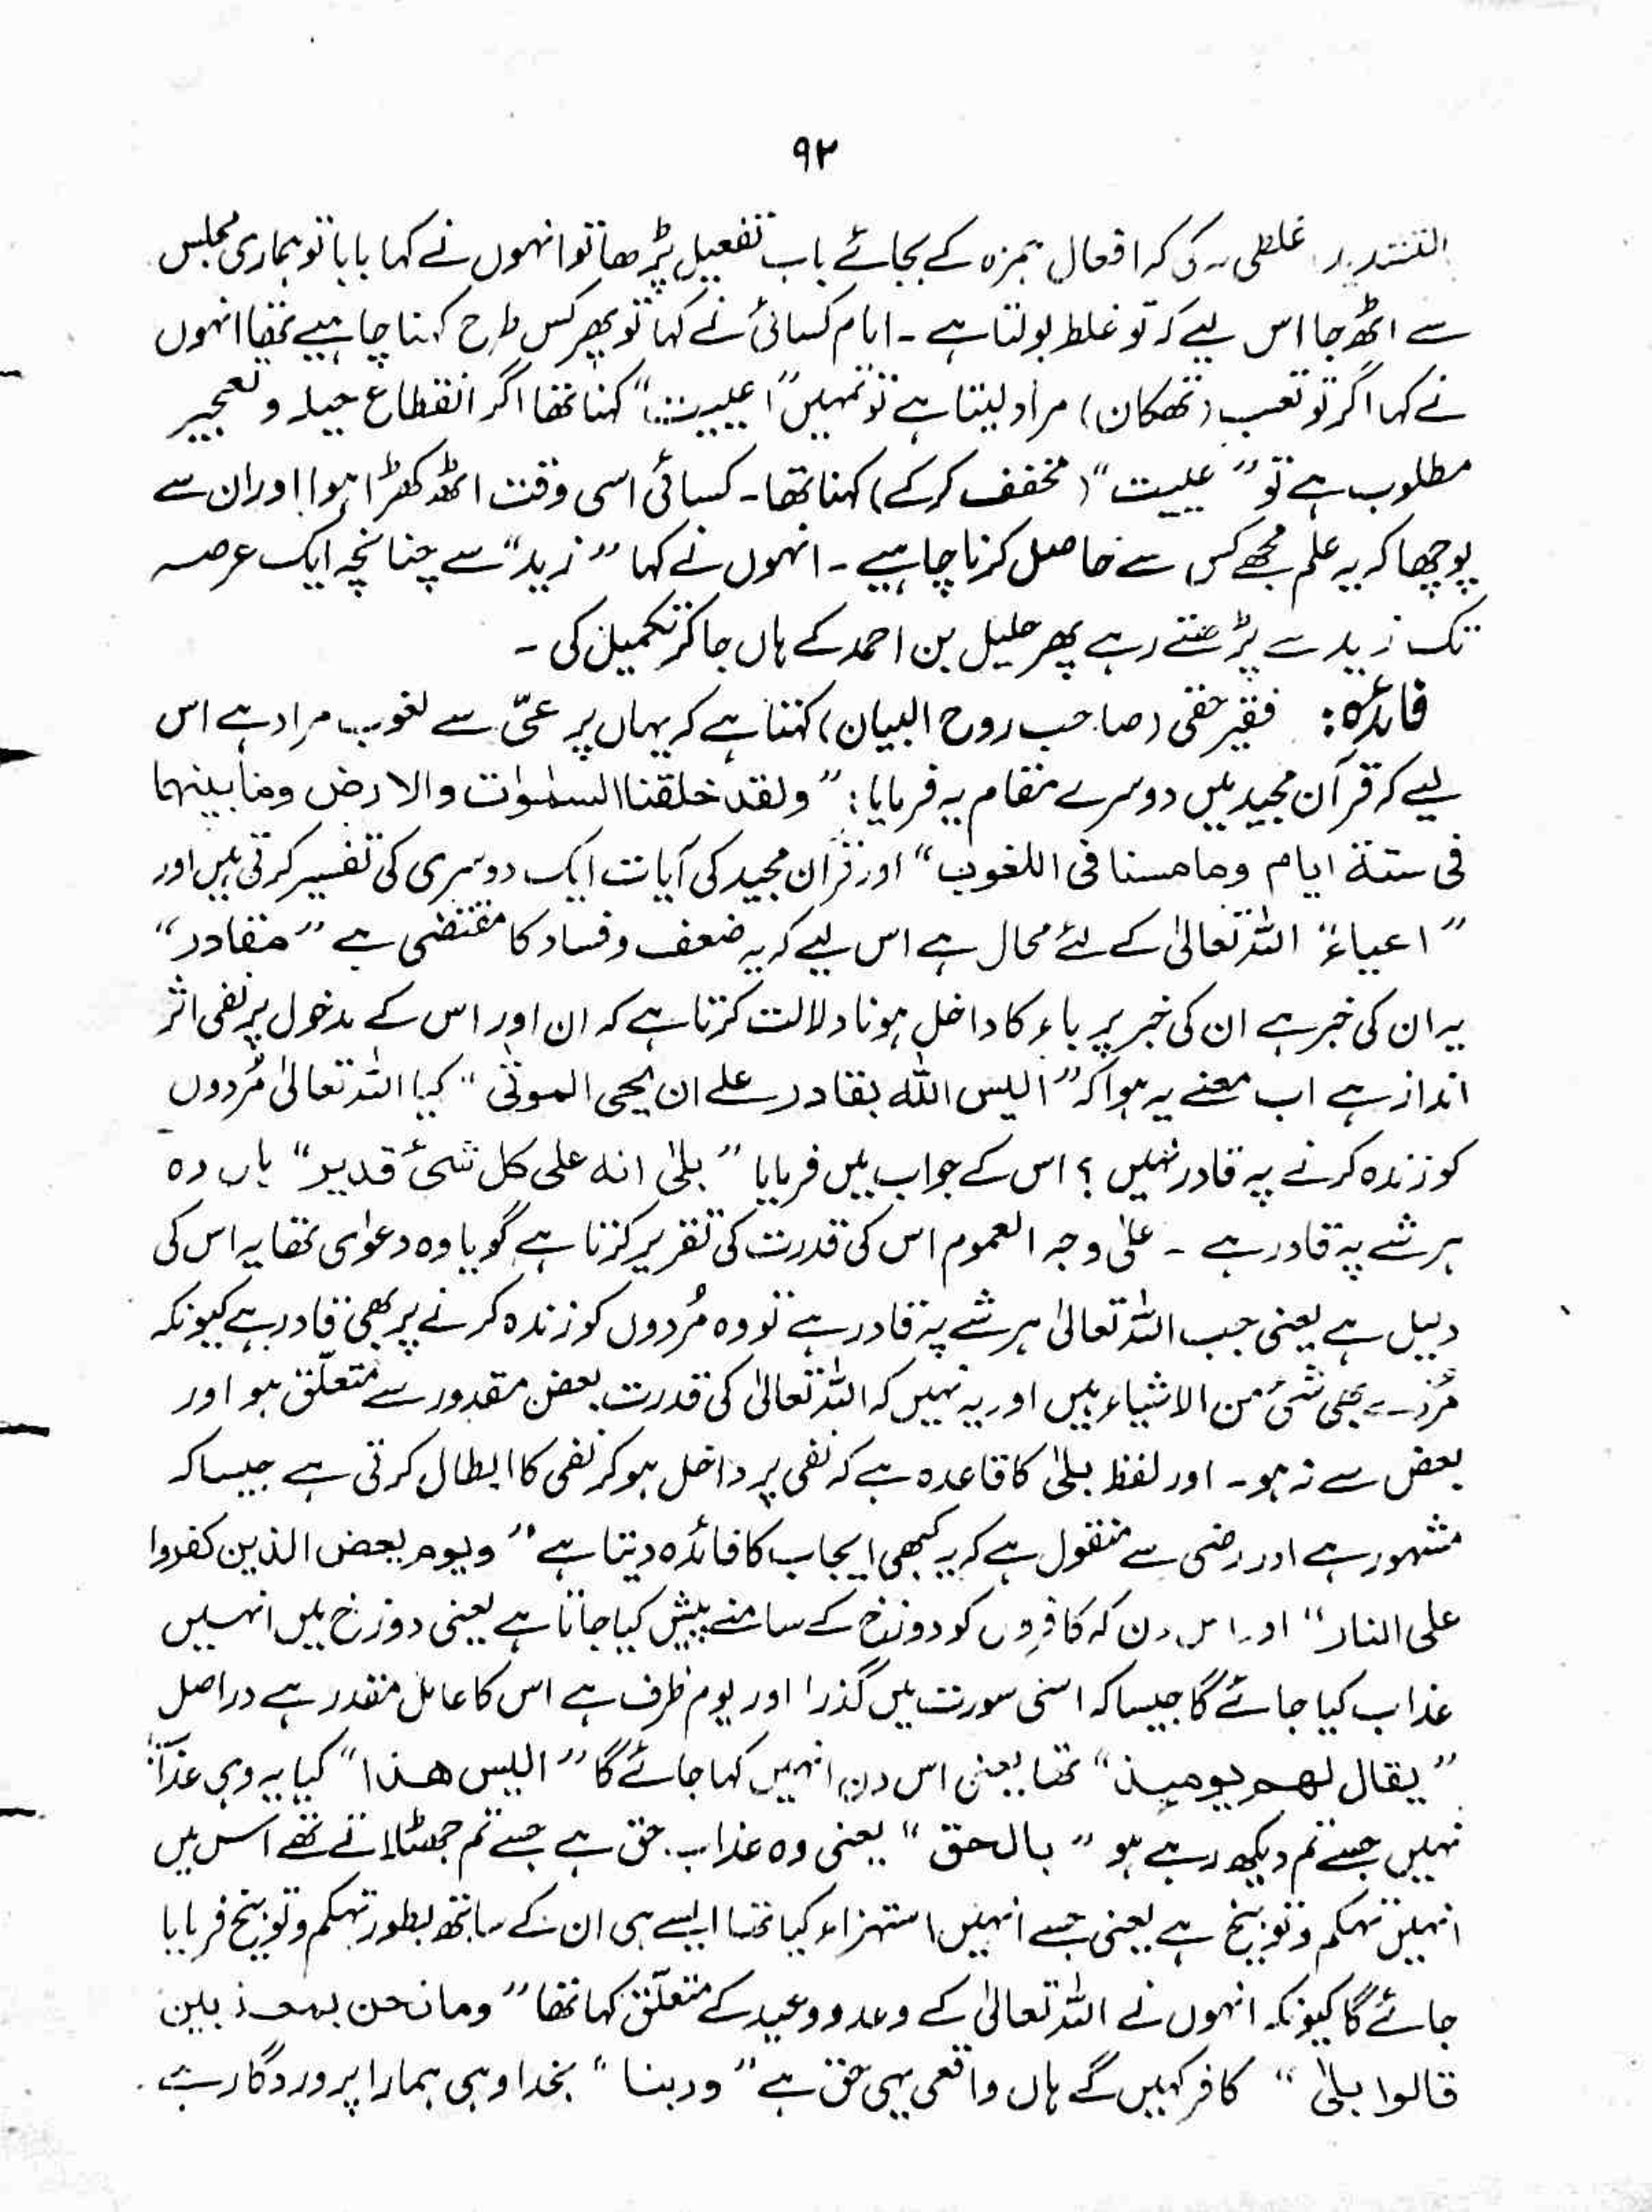 ۹۲
التشدید غلطی یہ کی کہ افعال ہمزہ کے بجائے باب تفعیل پڑھا تو انہوں نے کہا بابا تو ہماری مجلس
سے اٹھ جا اس لیے کہ تو غلط بولتا ہے ۔ امام کسائی نے کہا تو پھر کس طرح کہنا چاہیے تھا انہوں
نے کہا اگر تو تعب (تھکان) مراد لیتا ہے تو تمہیں "اعییت" کہنا تھا اگر انقطاع حیلہ و تعجیر
مطلوب ہے تو "عییت" (مخفف کر کے) کہنا تھا ۔ کسائی اسی وقت اٹھ کھڑا ہوا اور ان سے
پوچھا کہ یہ علم مجھے کس سے حاصل کرنا چاہیے ۔ انہوں نے کہا "زید" سے چنانچہ ایک عرصہ
تک زید سے پڑھتے رہے پھر خلیل بن احمد کے ہاں جا کر تکمیل کی ۔
فائدہ : فقیر حقی (صاحب روح البیان) کہتا ہے کہ یہاں پر عیّ سے لغوب مراد ہے اس
لیے کہ قرآن مجید میں دوسرے مقام پہ فرمایا : "ولقد خلقنا السمٰوٰت والارض وما بینہما
فی ستۃ ایام وما مسنا فی اللغوب" اور قرآن مجید کی آیات ایک دوسری کی تفسیر کرتی ہیں اور
"اعیاء" اللہ تعالیٰ کے لئے محال ہے اس لیے کہ یہ ضعف و فساد کا مقتضی ہے "بقادر"
یہ ان کی خبر ہے ان کی خبر پر باء کا داخل ہونا دلالت کرتا ہے کہ ان اور اس کے مدخول پر نفی اثر
انداز ہے اب معنے یہ ہوا کہ "الیس اللہ بقادر علے ان یحی الموتٰی" کیا اللہ تعالیٰ مُردوں
کو زندہ کرنے پہ قادر نہیں ؟ اس کے جواب میں فرمایا "بلیٰ انہ علی کل شئ قدیر" ہاں وہ
ہر شے پہ قادر ہے ۔ علیٰ وجہ العموم اس کی قدرت کی تقریر کرتا ہے گویا وہ دعوٰی تھا یہ اس کی
دلیل ہے یعنی جب اللہ تعالیٰ ہر شے پہ قادر ہے تو وہ مُردوں کو زندہ کرنے پر بھی قادر ہے کیونکہ
مُردے بھی شئ من الاشیاء ہیں اور یہ نہیں کہ اللہ تعالیٰ کی قدرت بعض مقدور سے متعلّق ہو اور
بعض سے نہ ہو ۔ اور لفظ بلیٰ کا قاعدہ ہے کہ نفی پر داخل ہو کر نفی کا ابطال کرتی ہے جیسا کہ
مشہور ہے اور رضی سے منقول ہے کہ یہ کبھی ایجاب کا فائدہ دیتا ہے "ویوم یعض الذین کفروا
علی النار" اور اس دن کہ کافروں کو دوزخ کے سامنے پیش کیا جاتا ہے یعنی دوزخ میں انہیں
عذاب کیا جائے گا جیسا کہ اسی سورت میں گذرا اور یوم ظرف ہے اس کا عامل مقدر ہے دراصل
"یقال لھم یومیذ" تھا یعنی اس دن انہیں کہا جائے گا "الیس ھذا" کیا یہ وہی عذاب
نہیں جسے تم دیکھ رہے ہو "بالحق" یعنی وہ عذاب حق ہے جسے تم جھٹلاتے تھے اس میں
انہیں تہکم و توبیخ ہے یعنی جسے انہیں استہزاء کیا تھا ایسے ہی ان کے ساتھ بطور تہکم و توبیخ فرمایا
جائے گا کیونکہ انہوں نے اللہ تعالیٰ کے وعد و وعید کے متعلّق کہا تھا "وما نحن بمعذبین
قالوا بلیٰ" کافر کہیں گے ہاں واقعی یہی حق ہے "وربنا" بخدا وہی ہمارا پروردگار ہے ۔